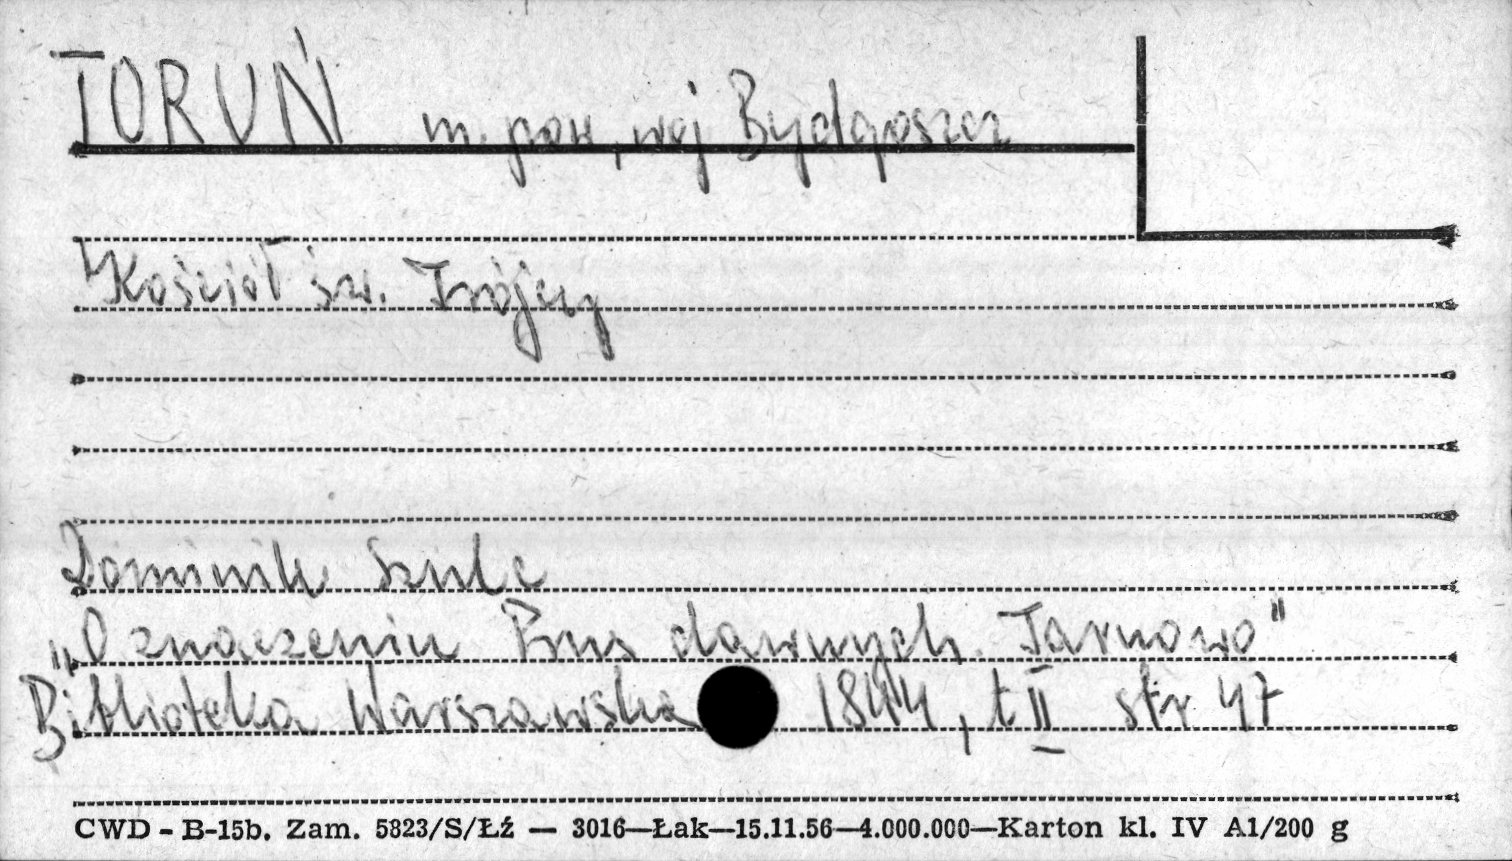 TORUŃ m. pow, woj Bydgoszcz
Kościół św. Trójcy
Dominik Szulc
„O znaczeniu Prus dawnych. Tarnowo"
Biblioteka Warszawska 1844, t II str 47
CWD - B-15b. Zam. 5823/S/Łź — 3016—Łak—15.11.56—4.000.000—Karton kl. IV A1/200 g